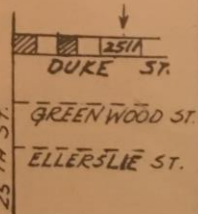 2511
DUKE ST.
GREENWOOD ST.
ELLERSLIE ST.
25TH ST.